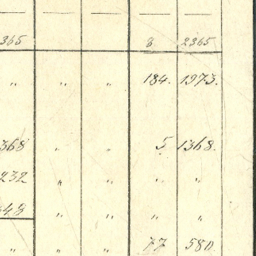 365 3 2365
„ „ „ 184. 1973.
368 „ „ 5. 1368.
232 „ „ „ „
48 „ „ „ „
„ „ „ 77 580